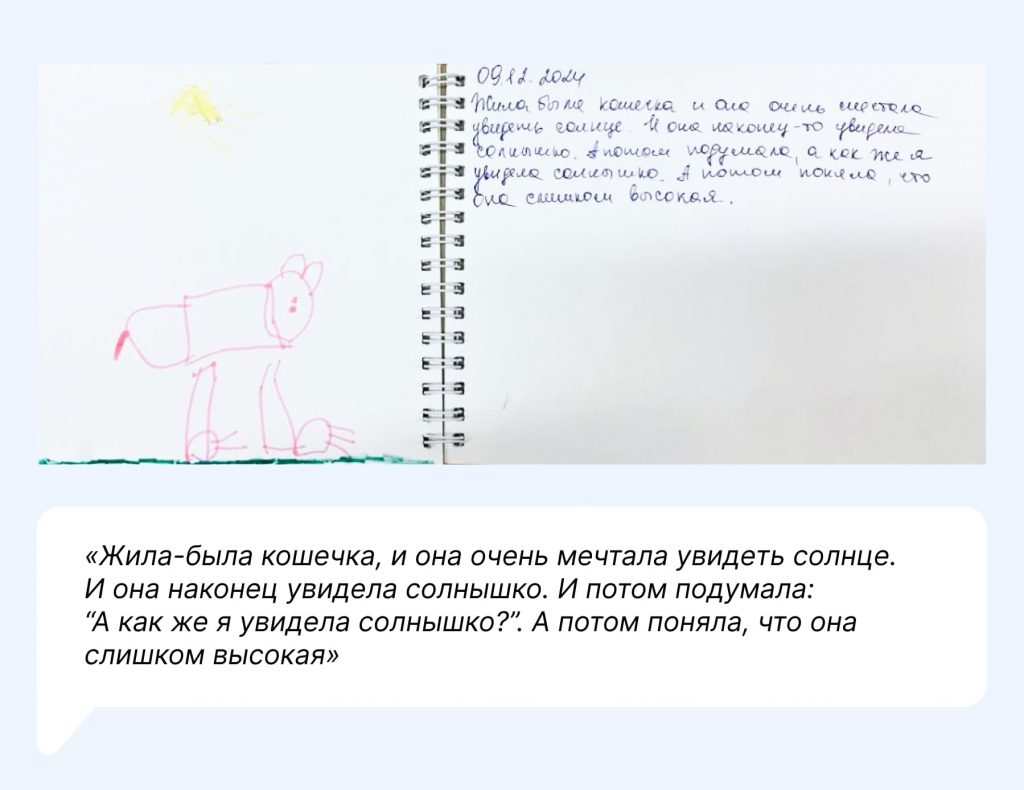 09.12.2024
Жила была кошечка и она очень мечтала
увидеть солнце. И она наконец-то увидела
солнышко. А потом подумала, а как же я
увидела солнышко. А потом поняла, что
она слишком высокая.
«Жила-была кошечка, и она очень мечтала увидеть солнце.
И она наконец увидела солнышко. И потом подумала:
“А как же я увидела солнышко?”. А потом поняла, что она
слишком высокая»